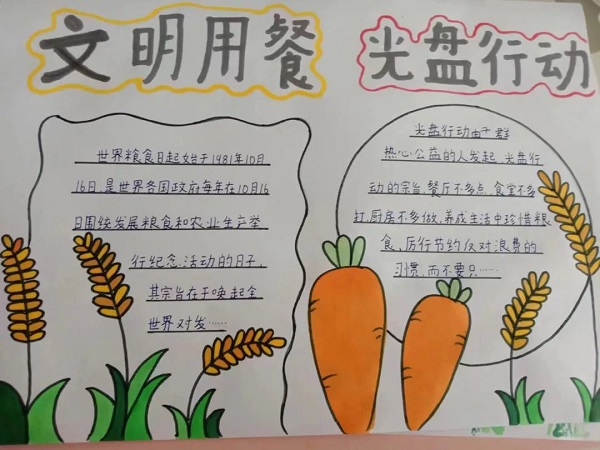 文明用餐
光盘行动
世界粮食日起始于1981年10月
16日,是世界各国政府每年在10月16
日围绕发展粮食和农业生产举
行纪念活动的日子,
其宗旨在于唤起全
世界对发……
光盘行动由于群
热心公益的人发起,光盘行
动的宗旨:餐厅不多点,食堂不多
打,厨房不多做,养成生活中珍惜粮
食、厉行节约反对浪费的
习惯,而不要只……